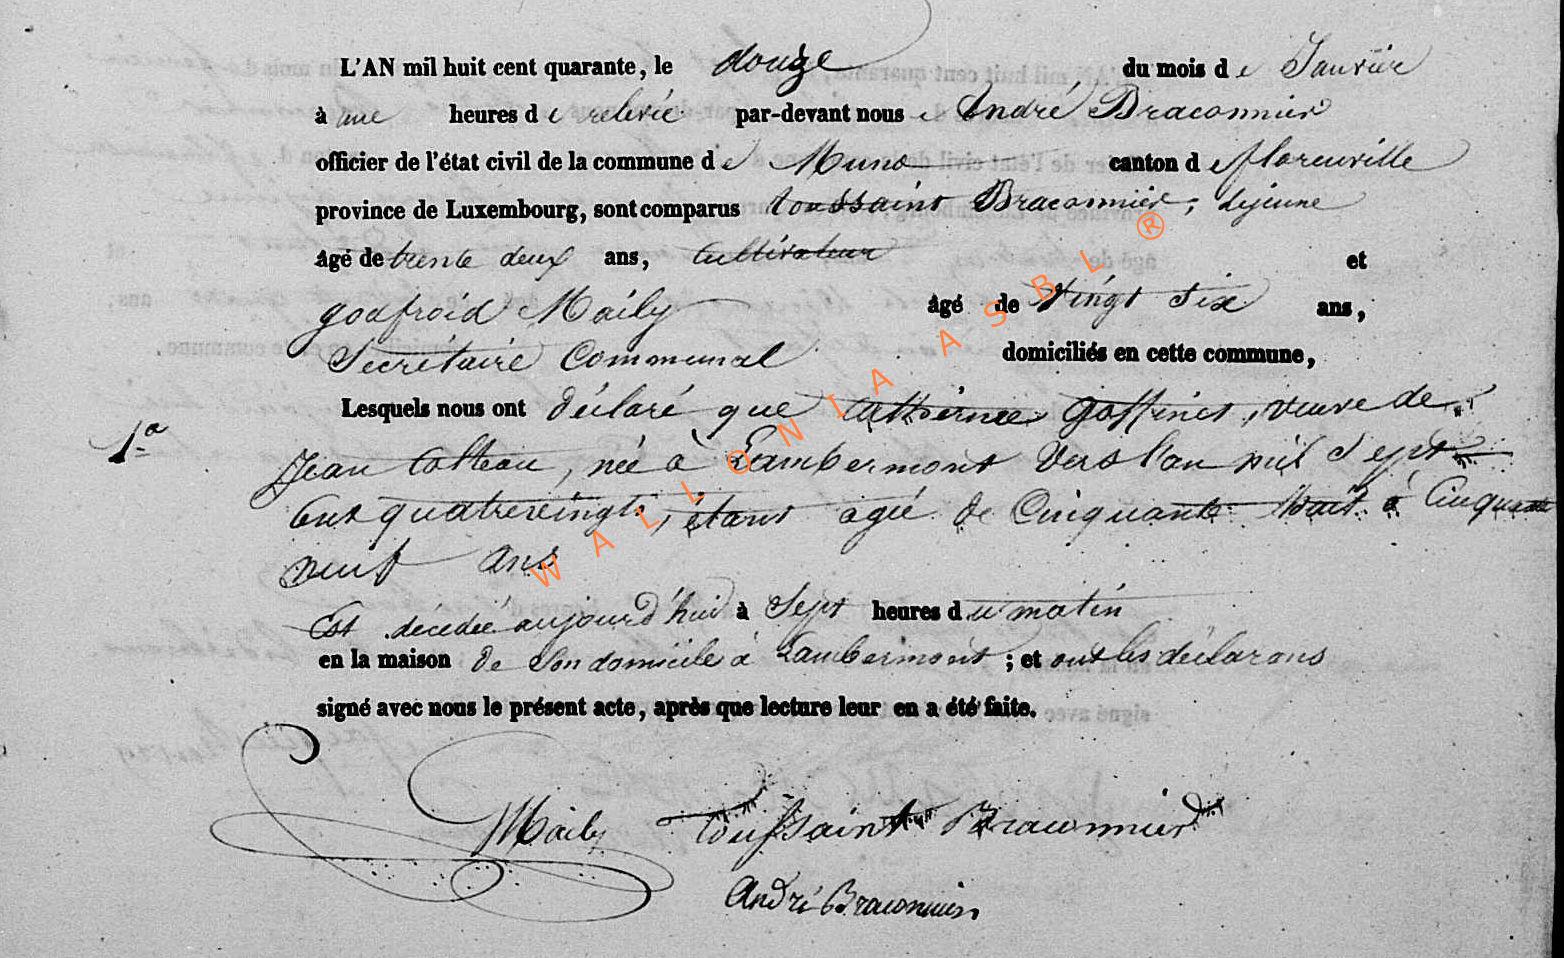 L'AN mil huit cent quarante, le douze du mois de Janvier
à une heures de relevée par-devant nous André Braconnier
officier de l'état civil de la commune de Muno canton de florenville
province de Luxembourg, sont comparus toussaint Braconnier, lejeune
âgé de trente deux ans, Cultivateur et
godfroid Maily âgé de Vingt Six ans,
Secrétaire Communal domiciliés en cette commune,
Lesquels nous ont déclaré que Cathérine Goffinet, veuve de
1ª
Jean Colteau, née à Lambermont vers l'an mil sept
Cent quatrevingt, étant agée de Cinquante huit à Cinquante
neuf ans
Est décédée aujourd'hui à Sept heures du matin
en la maison de Son domicile à Lambermont ; et ont les déclarans
signé avec nous le présent acte, après que lecture leur en a été faite.
Maily Toussaint Braconnier
André Braconnier
WALLONIA ASBL ®